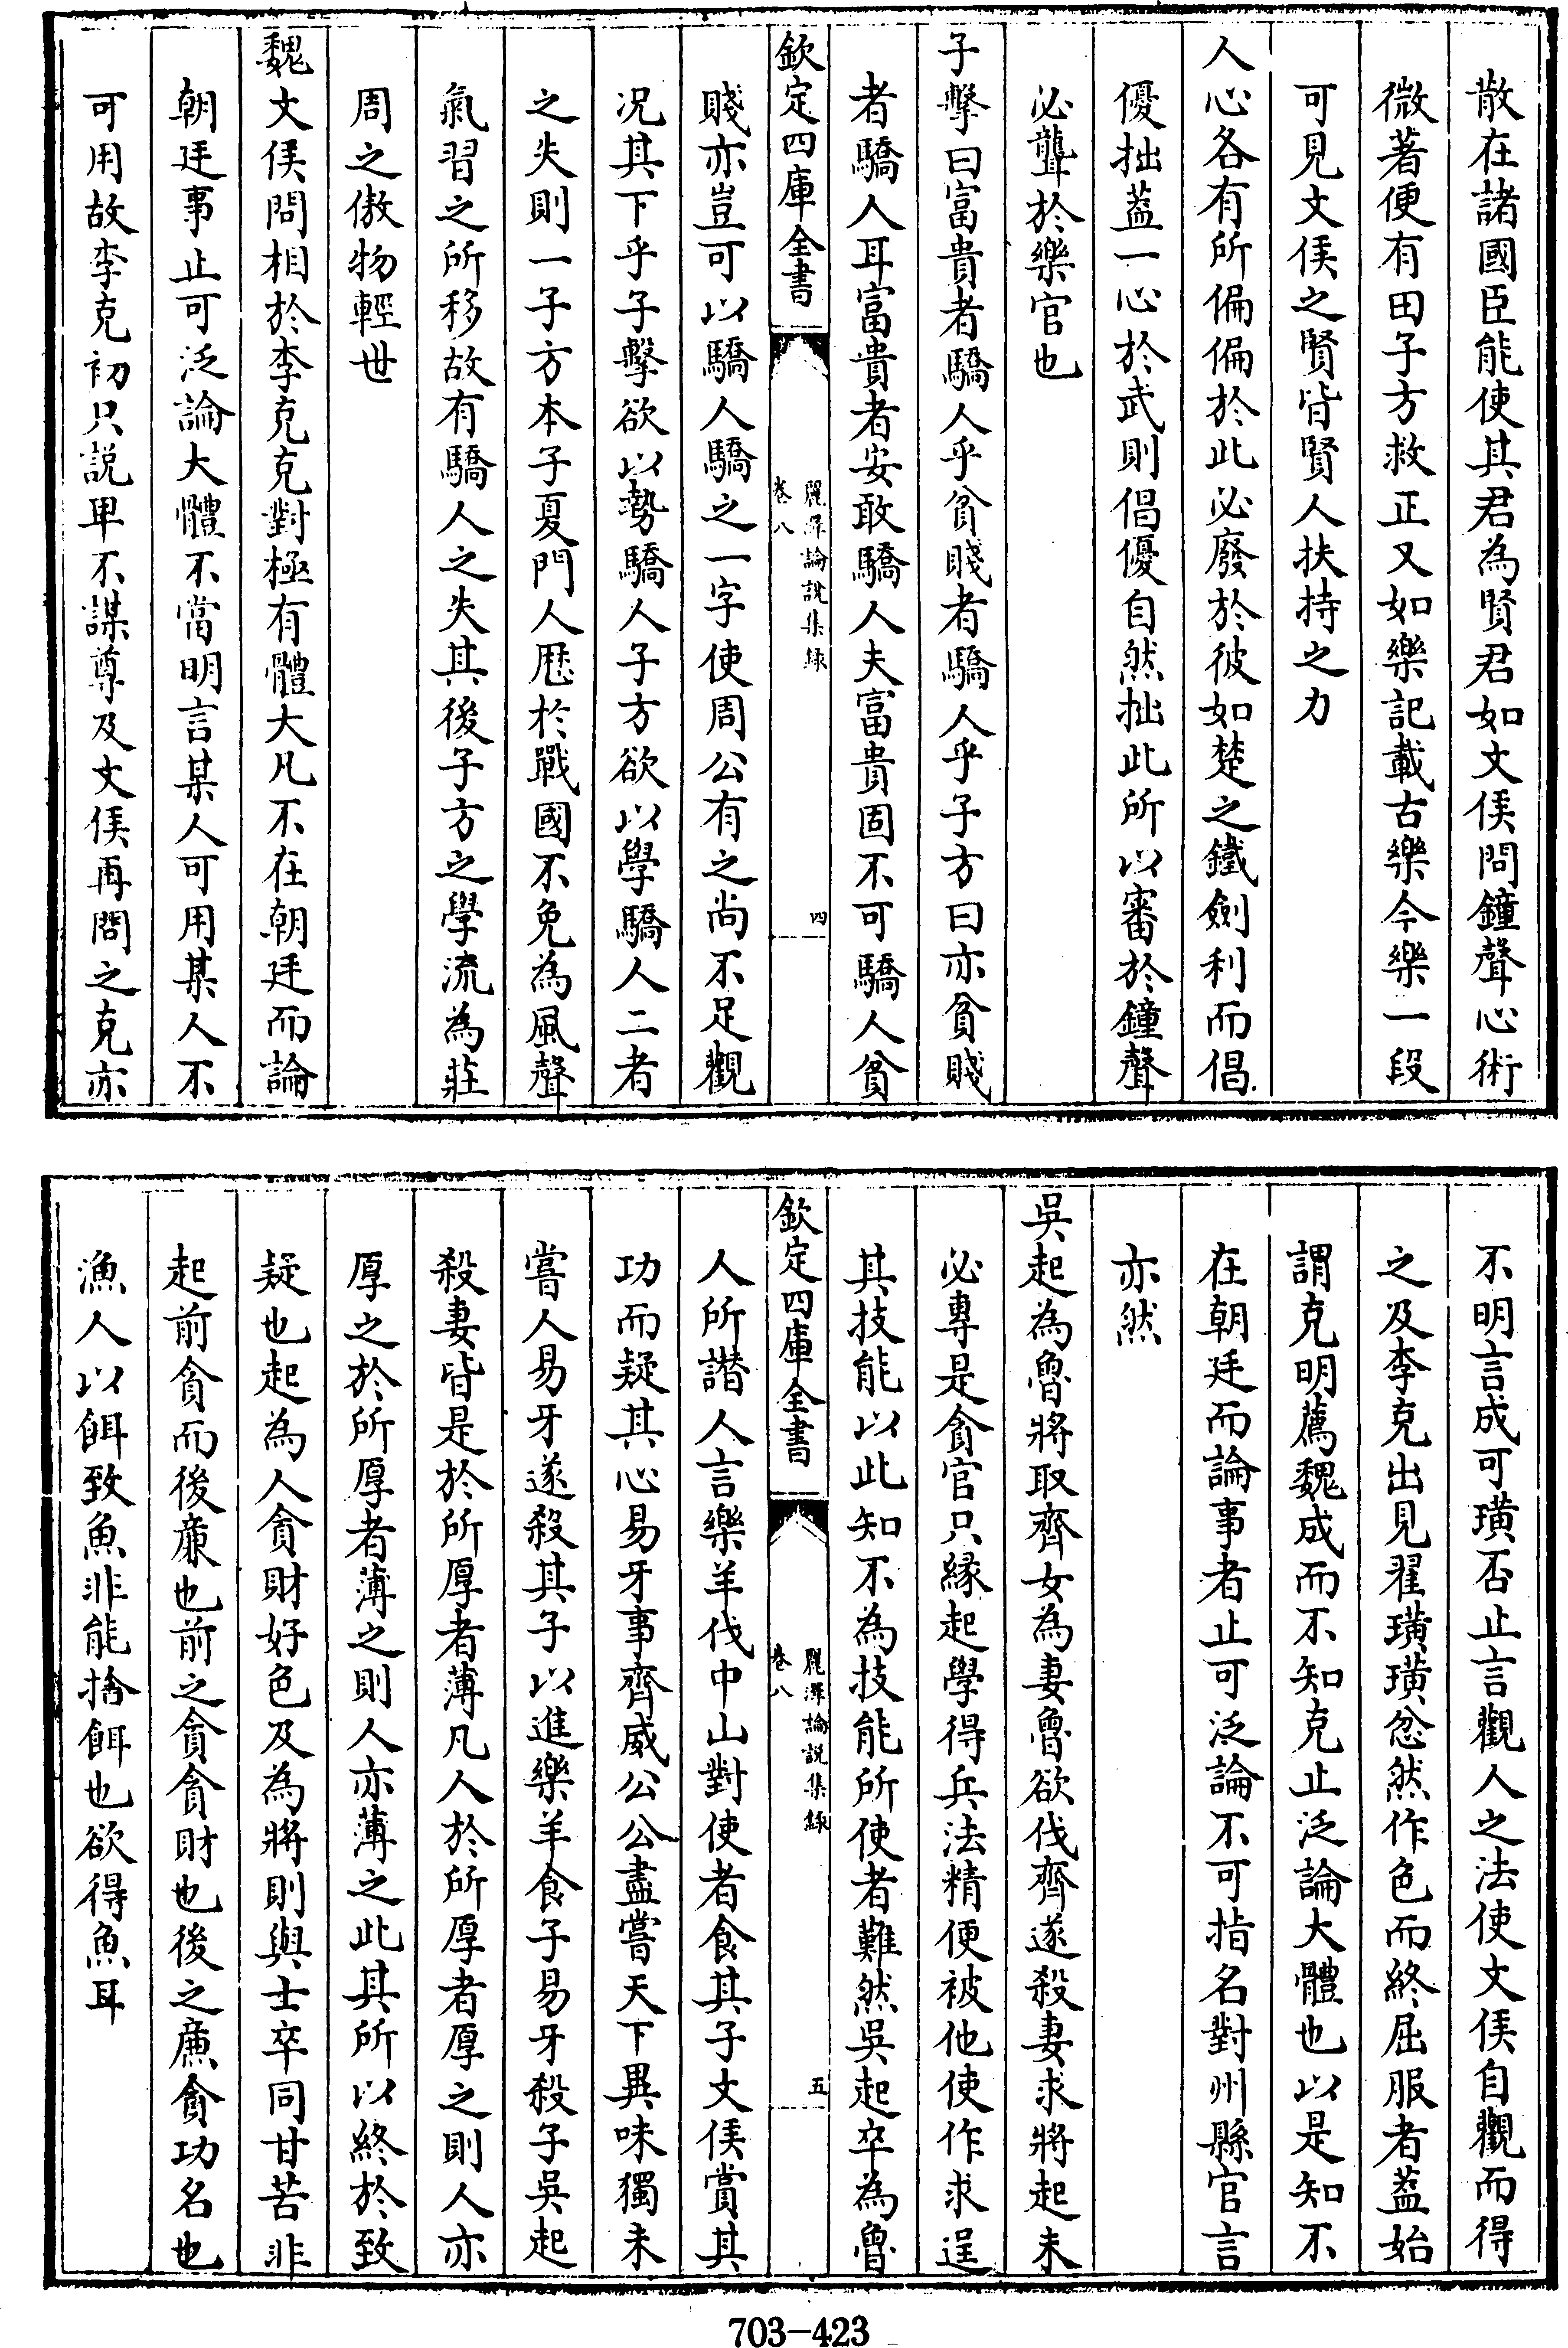 散在諸國臣能使其君為賢君如文侯問鐘聲心術
微著便有田子方救正又如樂記載古樂今樂一段
可見文侯之賢皆賢人扶持之力
人心各有所偏偏於此必廢於彼如楚之鐵劍利而倡
優拙蓋一心於武則倡優自然拙此所以審於鐘聲
必聾於樂官也
子擊曰富貴者驕人乎貧賤者驕人乎子方曰亦貧賤
者驕人耳富貴者安敢驕人夫富貴固不可驕人貧
欽定四庫全書
麗澤論說集錄
卷八
四
賤亦豈可以驕人驕之一字使周公有之尚不足觀
况其下乎子擊欲以勢驕人子方欲以學驕人二者
之失則一子方本子夏門人厯於戰國不免為風聲
氣習之所移故有驕人之失其後子方之學流為莊
周之傲物輕世
魏文侯問相於李克克對極有體大凡不在朝廷而論
朝廷事止可泛論大體不當明言某人可用某人不
可用故李克初只説卑不謀尊及文侯再問之克亦
不明言成可璜否止言觀人之法使文侯自觀而得
之及李克出見翟璜璜忿然作色而終屈服者葢始
謂克明薦魏成而不知克止泛論大體也以是知不
在朝廷而論事者止可泛論不可指名對州縣官言
亦然
吳起為魯將取齊女為妻魯欲伐齊遂殺妻求將起未
必專是貪官只緣起學得兵法精便被他使作求逞
其技能以此知不為技能所使者難然吳起卒為魯
欽定四庫全書
麗澤論説集錄
卷八
五
人所譖人言樂羊伐中山對使者食其子文侯賞其
功而疑其心易牙事齊威公公盡嘗天下異味獨未
嘗人易牙遂殺其子以進樂羊食子易牙殺子吳起
殺妻皆是於所厚者薄凡人於所厚者厚之則人亦
厚之於所厚者薄之則人亦薄之此其所以終於致
疑也起為人貪財好色及為將則與士卒同甘苦非
起前貪而後廉也前之貪貪財也後之廉貪功名也
漁人以餌致魚非能捨餌也欲得魚耳
703-423